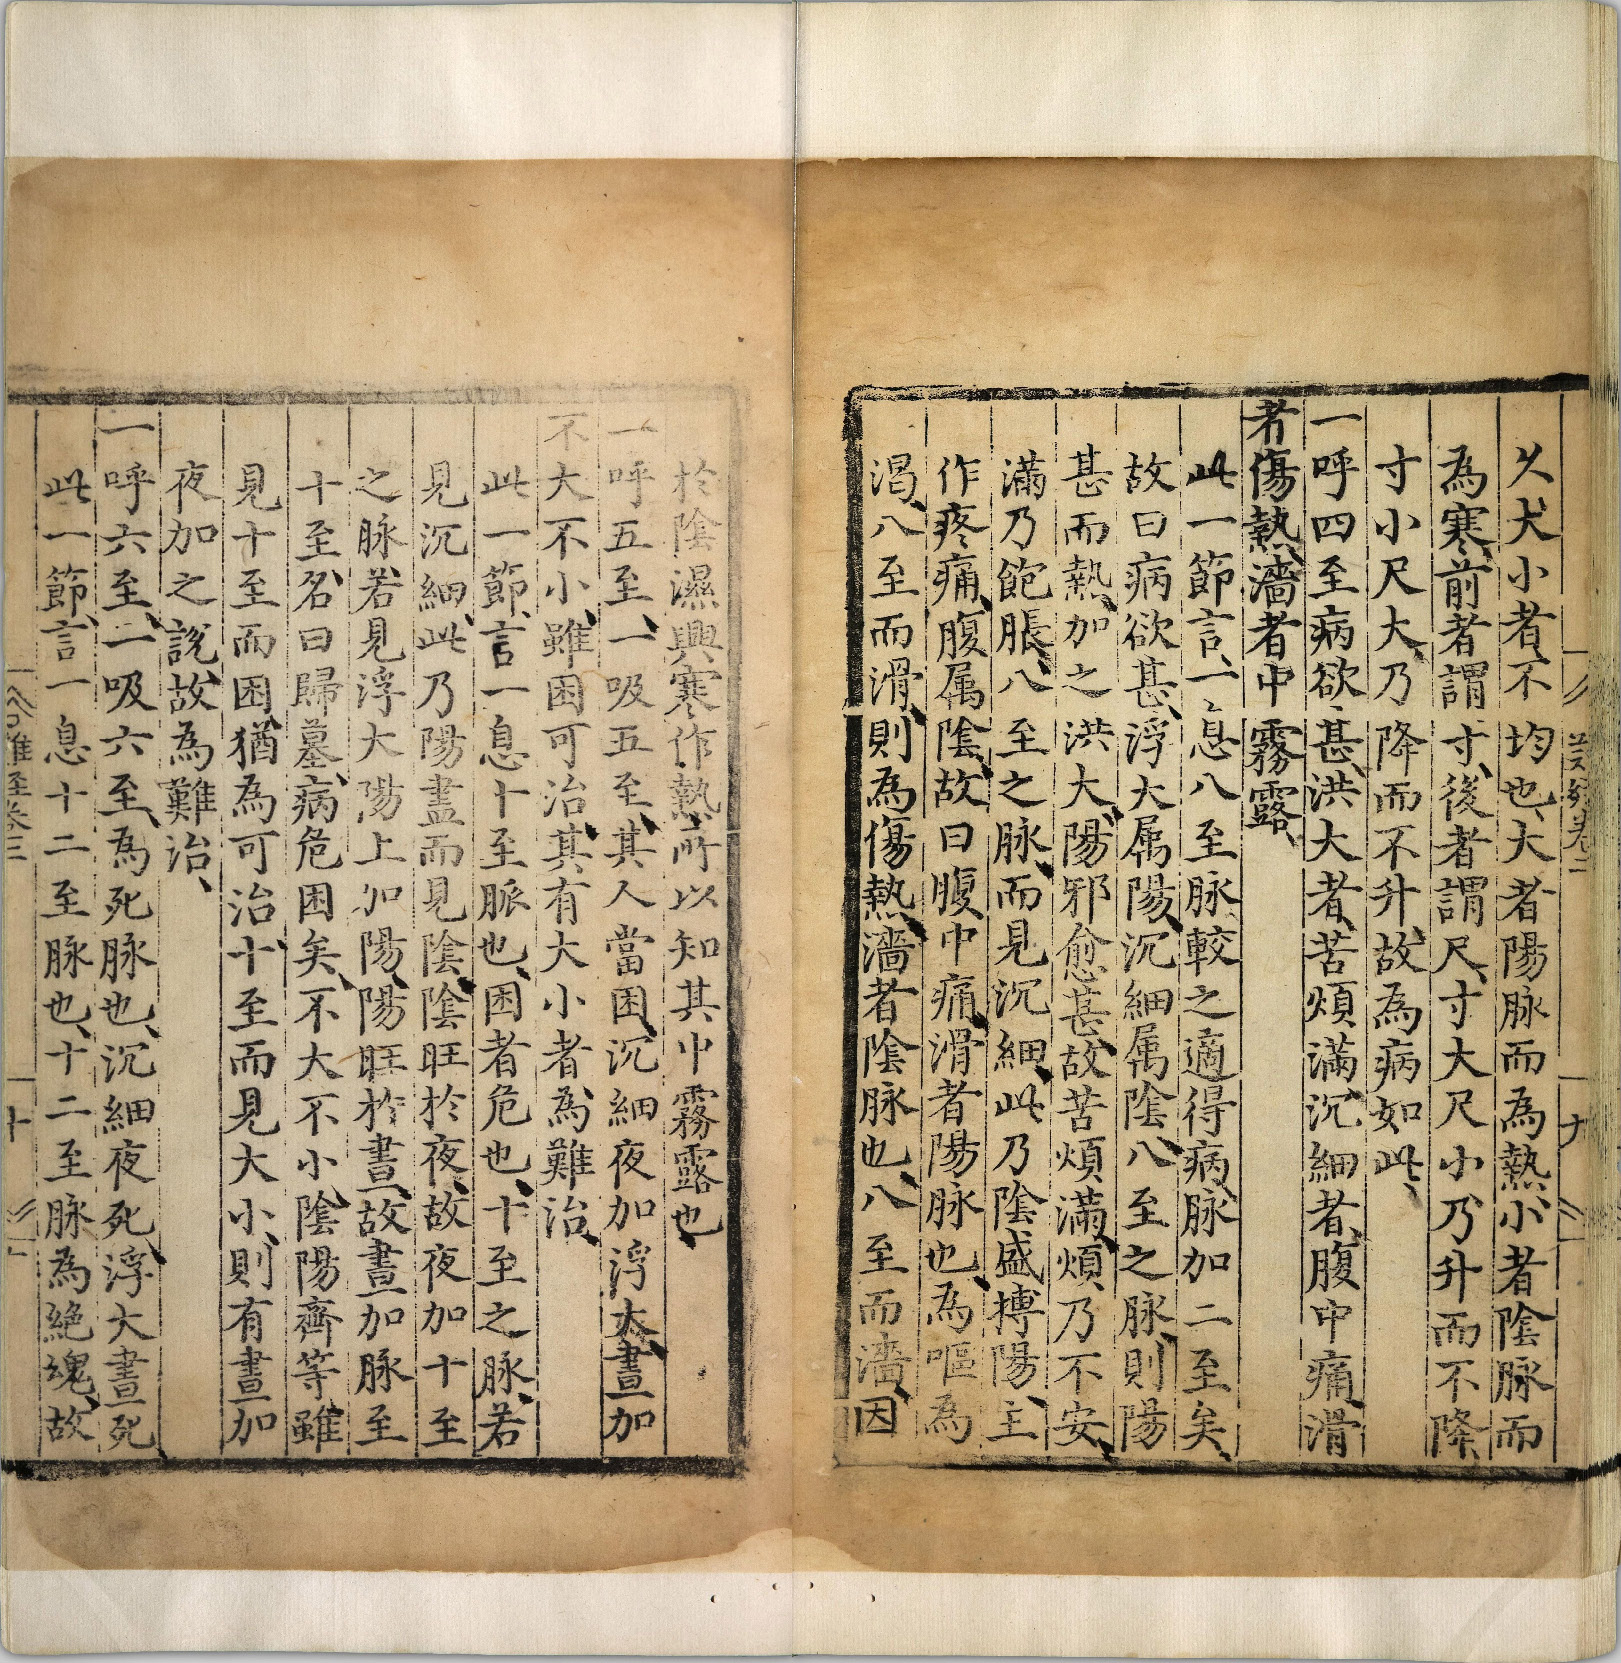 乆大小者不均也大者陽脉而為熱小者陰脉而
為寒前者謂寸後者謂尺寸大尺小乃升而不降
寸小尺大乃降而不升故為病如此
一呼四至病欲甚洪大者苦煩滿沉細者腹中痛滑
者傷熱濇者中霧露
此一節言一息八至脉較之適得病脉加二至矣
故曰病欲甚浮大属陽沉細属陰八至之脉則陽
甚而熱加之洪大陽邪愈甚故苦煩滿煩乃不安
滿乃飽脹八至之脉而見沉細此乃陰盛摶陽主
作疼痛腹属陰故曰腹中痛滑者陽脉也為嘔為
渴八至而滑則為傷熱濇者陰脉也八至而濇因
於陰濕興寒作熱所以知其中霧露也
一呼五至一吸五至其人當困沉細夜加浮大晝加
不大不小雖困可治其有大小者為難治
此一節言一息十至脈也困者危也十至之脉若
見沉細此乃陽盡而見陰陰旺於夜故夜加十至
之脉若見浮大陽上加陽陽旺於晝故晝加脉至
十至名曰歸墓病危困矣不大不小陰陽齊等雖
見十至而困猶為可治十至而見大小則有晝加
夜加之說故為難治
一呼六至一吸六至為死脉也沉細夜死浮大晝死
此一節言一息十二至脉也十二至脉為絕魂故
難經卷三
十